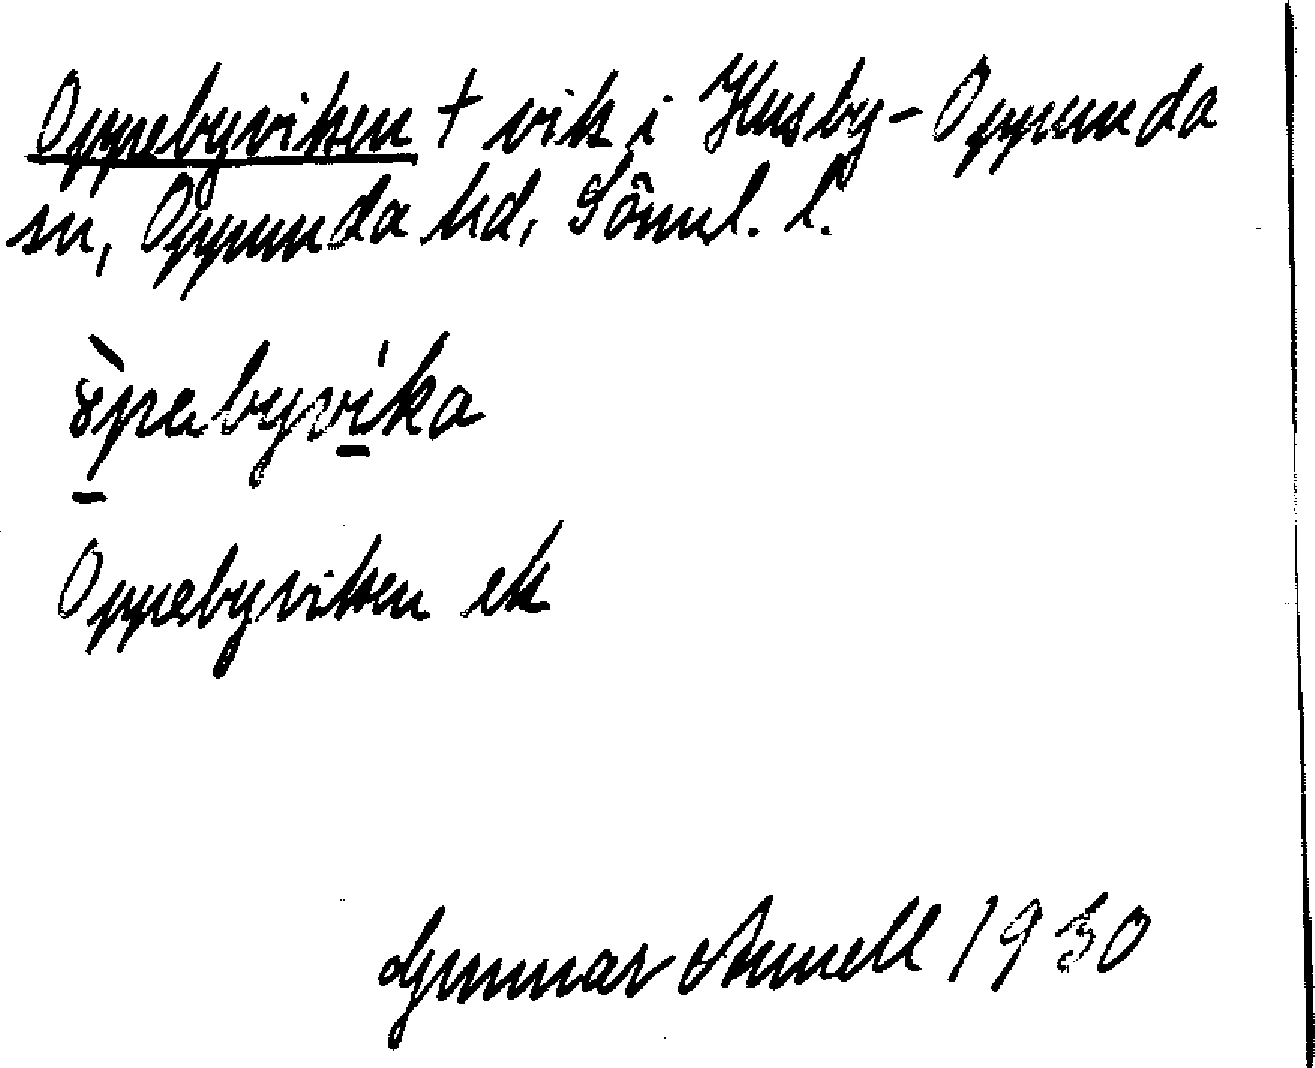 Oppebyviken + vik i Husby-Oppunda
sn, Oppunda hd, Söml. l.
òpebyvika
Oppebyviken ek
Gunnar Annell 1930